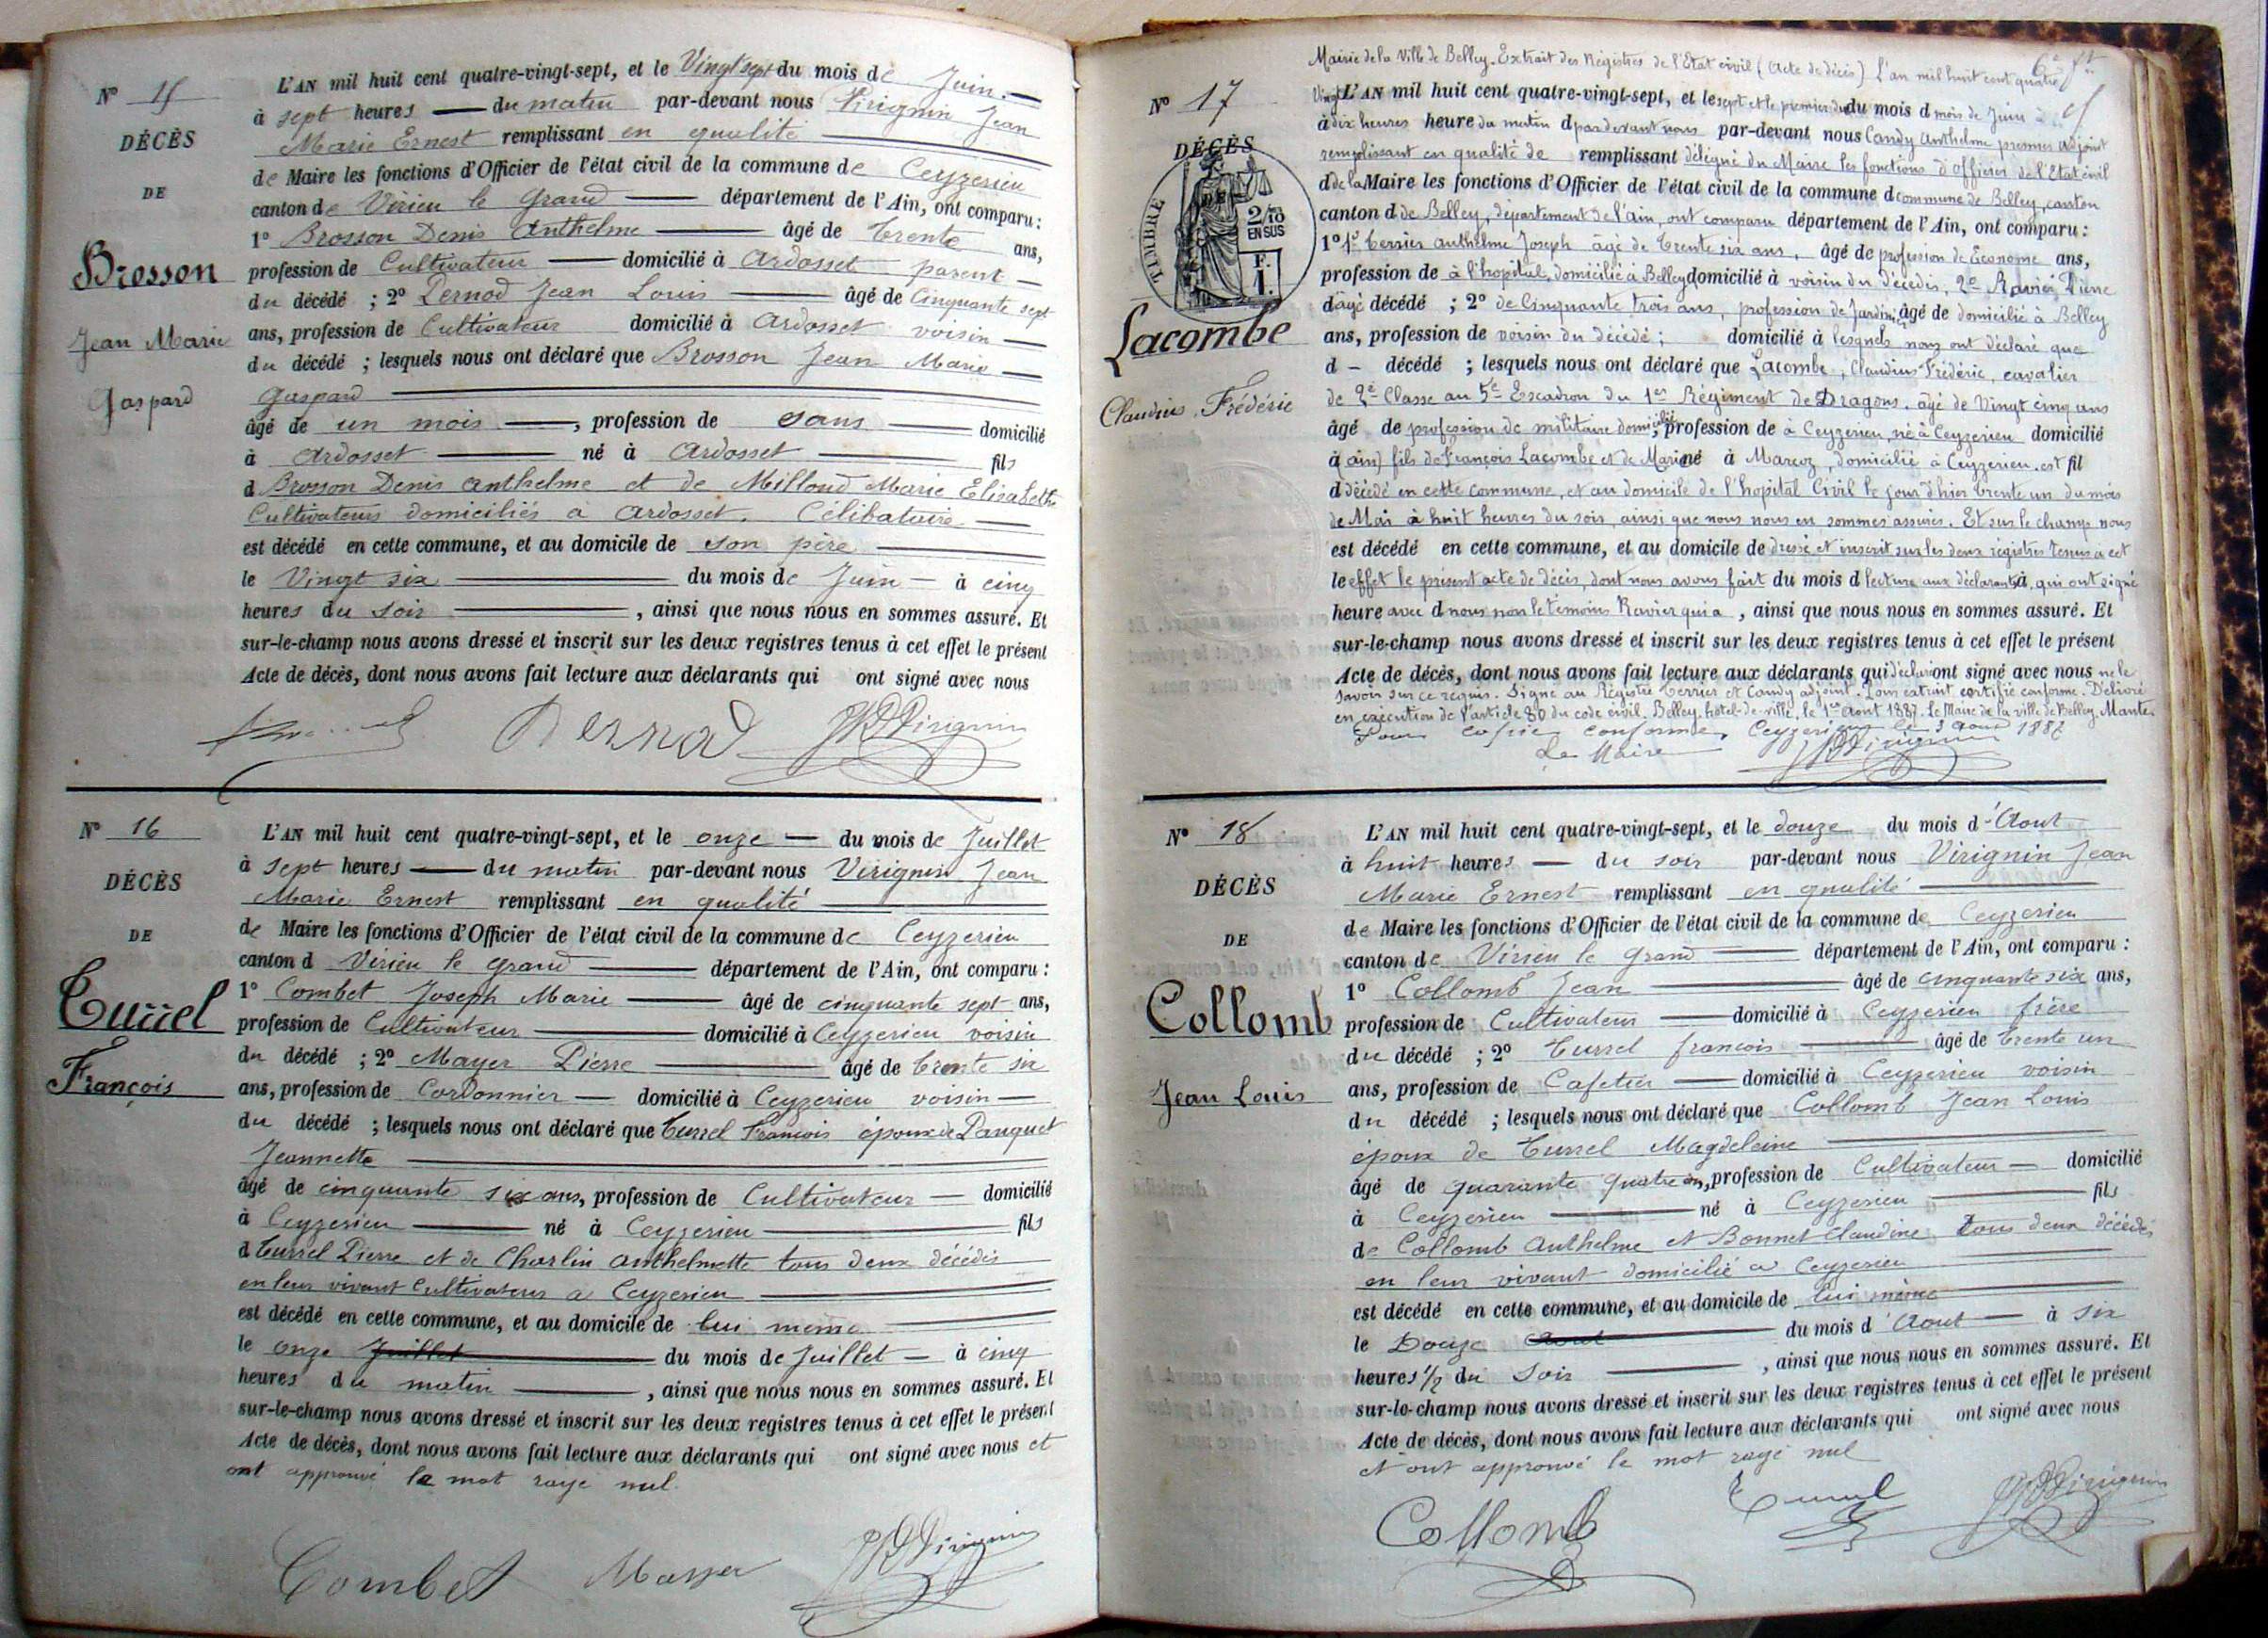 N° 15
DÉCÈS
DE
Bresson
Jean Marie
Gaspard
L'AN mil huit cent quatre-vingt-sept, et le Vingt sept du mois de Juin
à sept heures du matin par-devant nous Virignin Jean
Marie Ernest remplissant en qualité
de Maire les fonctions d'Officier de l'état civil de la commune de Ceyzerieu
canton de Virieu le Grand département de l'Ain, ont comparu :
1° Brosson Denis Anthelme âgé de trente ans,
profession de Cultivateur domicilié à Ardosset parent
du décédé ; 2° Pernod Jean Louis âgé de Cinquante sept
ans, profession de Cultivateur domicilié à Ardosset voisin
du décédé ; lesquels nous ont déclaré que Brosson Jean Marie
Gaspard
âgé de un mois, profession de sans domicilié
à Ardosset né à Ardosset fils
d Brosson Denis anthelme et de Milloud Marie Elisabeth
Cultivateurs domiciliés à Ardosset. Célibataire
est décédé en cette commune, et au domicile de son père
le Vingt six du mois de Juin à cinq
heures du soir, ainsi que nous nous en sommes assuré. Et
sur-le-champ nous avons dressé et inscrit sur les deux registres tenus à cet effet le présent
Acte de décès, dont nous avons fait lecture aux déclarants qui ont signé avec nous
Pernod Virignin
N° 16
DÉCÈS
DE
Turrel
François
L'AN mil huit cent quatre-vingt-sept, et le onze du mois de Juillet
à sept heures du matin par-devant nous Virignin Jean
Marie Ernest remplissant en qualité
de Maire les fonctions d'Officier de l'état civil de la commune de Ceyzerieu
canton d Virieu le grand département de l'Ain, ont comparu :
1° Combet Joseph Marie âgé de cinquante sept ans,
profession de Cultivateur domicilié à Ceyzerieu voisin
du décédé ; 2° Mayer Pierre âgé de trente six
ans, profession de Cordonnier domicilié à Ceyzerieu voisin
du décédé ; lesquels nous ont déclaré que Turrel François époux de Panquet
Jeannette
âgé de cinquante six ans, profession de Cultivateur domicilié
à Ceyzerieu né à Ceyzerieu fils
d Turrel Pierre et de Charlin anthelmette tous deux décédés
en leur vivant Cultivateurs à Ceyzerieu
est décédé en cette commune, et au domicile de lui même
le onze Juillet du mois de Juillet à cinq
heures du matin, ainsi que nous nous en sommes assuré. Et
sur-le-champ nous avons dressé et inscrit sur les deux registres tenus à cet effet le présent
Acte de décès, dont nous avons fait lecture aux déclarants qui ont signé avec nous et
ont approuvé le mot rayé nul.
Combet Mayer Virignin
N° 17
DÉCÈS
TIMBRE
2/10
EN SUS
F.
1.
Lacombe
Claudius Frédéric
Mairie de la Ville de Belley. Extrait des Registres de l'Etat civil (Acte de décès) L'an mil huit cent quatre
vingt L'AN mil huit cent quatre-vingt-sept, et le sept et le premier du du mois d mois de Juin à
à dix heures heure du matin d par devant nous par-devant nous Candy Anthelme premier Adjoint
remplissant en qualité de remplissant délégué du Maire les fonctions d'officier de l'Etat civil
d de la Maire les fonctions d'Officier de l'état civil de la commune d commune de Belley, canton
canton d de Belley, département de l'ain, ont comparu département de l'Ain, ont comparu :
1° 1° Terrier anthelme Joseph âgé de trente six ans, âgé de profession de Econome ans,
profession de à l'hopital, domicilié à Belley domicilié à voisin du décédé, 2° Ravier Pierre
d âgé décédé ; 2° de Cinquante trois ans, profession de Jardinier âgé de domicilié à Belley
ans, profession de voisin du décédé ; domicilié à lesquels nous ont déclaré que
d décédé ; lesquels nous ont déclaré que Lacombe, Claudius Frédéric, cavalier
de 2e Classe au 5e Escadron du 1er Régiment de Dragons. âgé de Vingt cinq ans
âgé de profession de militaire domicilié, profession de à Ceyzerieu, né à Ceyzerieu domicilié
à (ain) fils de François Lacombe et de Marie né à Marcoz, domicilié à Ceyzerieu. est fil
d décédé en cette commune, et au domicile de l'hopital Civil le jour d'hier trente un du mois
de Mai à huit heures du soir, ainsi que nous nous en sommes assurés. Et sur le champ nous
est décédé en cette commune, et au domicile de dressé et inscrit sur les deux registres tenus à cet
le effet le présent acte de décès, dont nous avons fait du mois d lecture aux déclarants à, qui ont signé
heure avec d nous non le témoins Ravier qui a, ainsi que nous nous en sommes assuré. Et
sur-le-champ nous avons dressé et inscrit sur les deux registres tenus à cet effet le présent
Acte de décès, dont nous avons fait lecture aux déclarants qui déclaré ont signé avec nous ne le
savoir sur ce requis. Signé au Registre Terrier et Candy adjoint. Pour extrait certifié conforme. Délivré
en exécution de l'article 80 du code civil. Belley, hôtel-de-ville, le 1er Août 1887. Le Maire de la ville de Belley. Mante.
Pour copie conforme, Ceyzerieu le 3 Août 1887
Le Maire Virignin
N° 18
DÉCÈS
DE
Collomb
Jean Louis
L'AN mil huit cent quatre-vingt-sept, et le douze du mois d'Aout
à huit heures du soir par-devant nous Virignin Jean
Marie Ernest remplissant en qualité
de Maire les fonctions d'Officier de l'état civil de la commune de Ceyzerieu
canton de Virieu le Grand département de l'Ain, ont comparu :
1° Collomb Jean âgé de cinquante six ans,
profession de Cultivateur domicilié à Ceyzerieu frère
du décédé ; 2° Turrel françois âgé de trente un
ans, profession de Cafetier domicilié à Ceyzerieu voisin
du décédé ; lesquels nous ont déclaré que Collomb Jean Louis
époux de Turrel Magdeleine
âgé de quarante quatre ans, profession de Cultivateur domicilié
à Ceyzerieu né à Ceyzerieu fils
de Collomb Anthelme et Bonnet Claudine tous deux décédés
en leur vivant domicilié à Ceyzerieu
est décédé en cette commune, et au domicile de lui même
le Douze Aout du mois d'Aout à six
heures 1/2 du soir, ainsi que nous nous en sommes assuré. Et
sur-le-champ nous avons dressé et inscrit sur les deux registres tenus à cet effet le présent
Acte de décès, dont nous avons fait lecture aux déclarants qui ont signé avec nous
et ont approuvé le mot rayé nul
Collomb Turrel Virignin